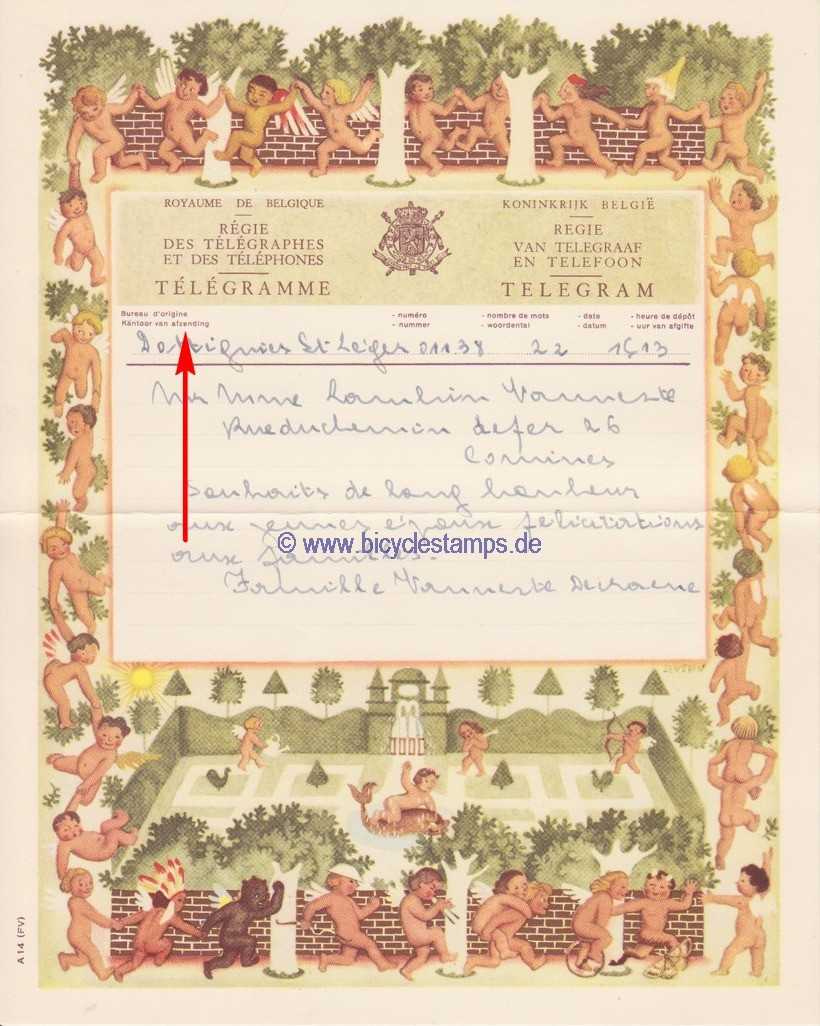 ROYAUME DE BELGIQUE
RÉGIE
DES TÉLÉGRAPHES
ET DES TÉLÉPHONES
TÉLÉGRAMME
KONINKRIJK BELGIË
REGIE
VAN TELEGRAAF
EN TELEFOON
TELEGRAM
Bureau d'origine - numéro - nombre de mots - date - heure de dépôt
Kantoor van afzending - nummer - woordental - datum - uur van afgifte
Dottignies St Léger 01138 22 1513
Mr Mme Vanneste
Rue du chemin de fer 26
Comines
Souhaits de long bonheur
aux jeunes époux félicitations
aux familles.
© www.bicyclestamps.de
Famille Vanneste
A 14 (FV)